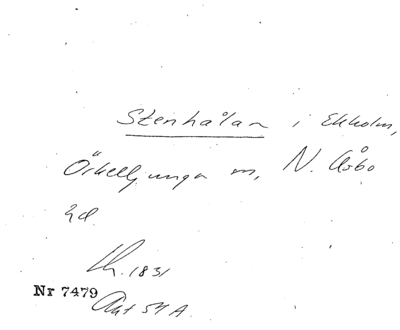 Stenhålan i Ekholm,
Örkelljunga sn, N. Åsbo
hd.
Lh. 1831
Nr 7479
Akt 54 A.